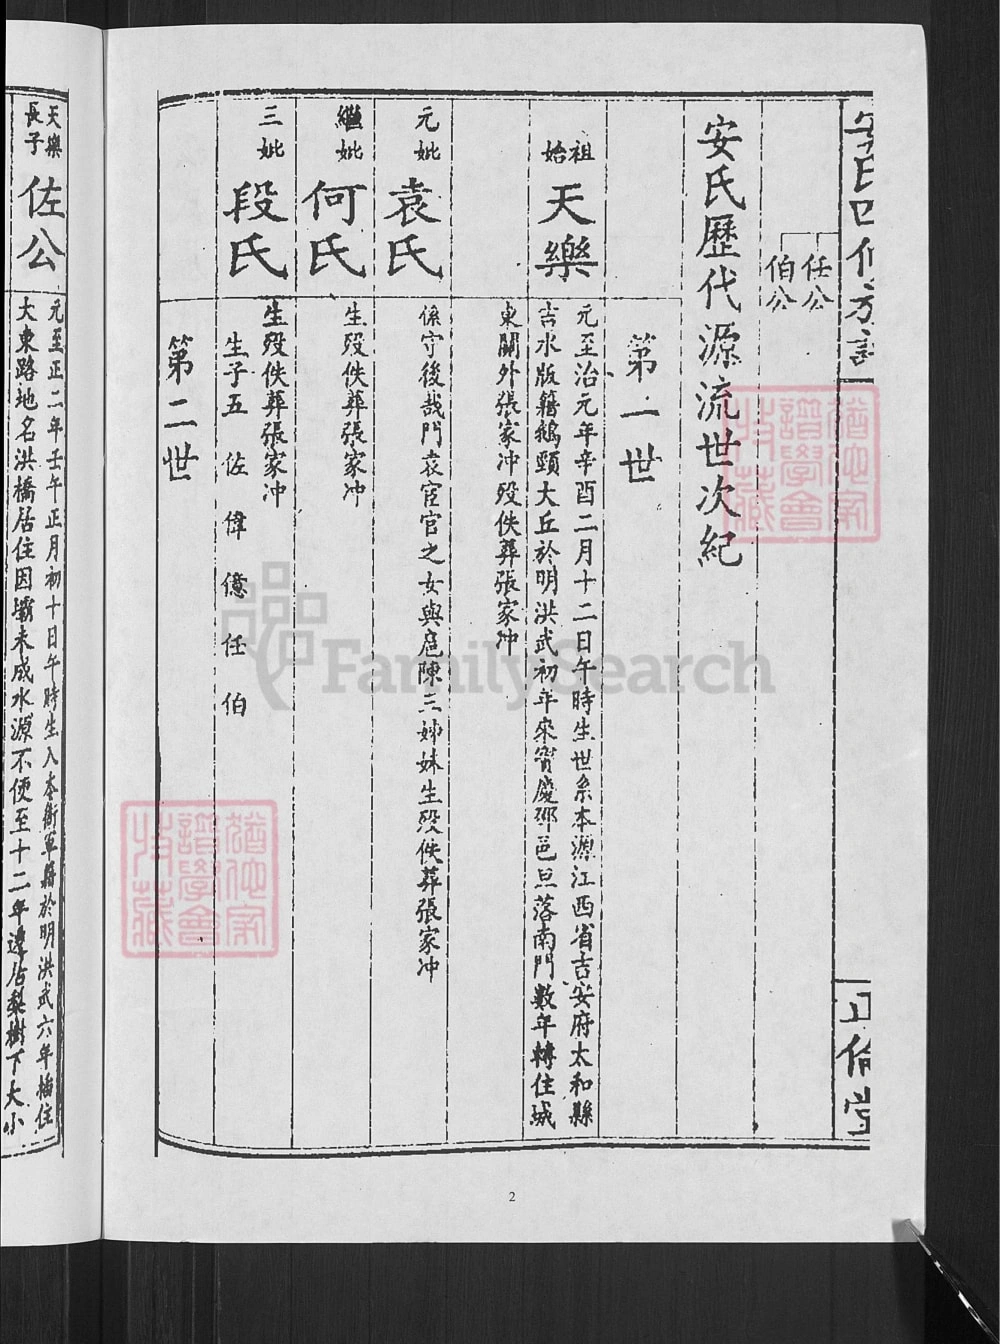 任公
伯公
安氏歷代源流世次紀
第一世
始祖
天樂
元至治元年辛酉二月十二日午時生世系本源江西省吉安府太和縣
吉水版籍鵝頸大丘於明洪武初年來寶慶邵邑旦落南門數年轉住城
東關外張家冲殁佚葬張家冲
元妣
袁氏
係守後哉門袁宦官之女與扈陳三姊妹生殁佚葬張家冲
繼妣
何氏
生殁佚葬張家冲
三妣
段氏
生殁佚葬張家冲
生子五 佐 偉 億 任 伯
第二世
天樂
長子
佐公
元至正二年壬午正月初十日午時生入本衛軍籍於明洪武六年插住
大東路地名洪橋居住因壩未成水源不便至十二年遷佔梨樹下大小
正倫堂
2
FamilySearch
譜學會